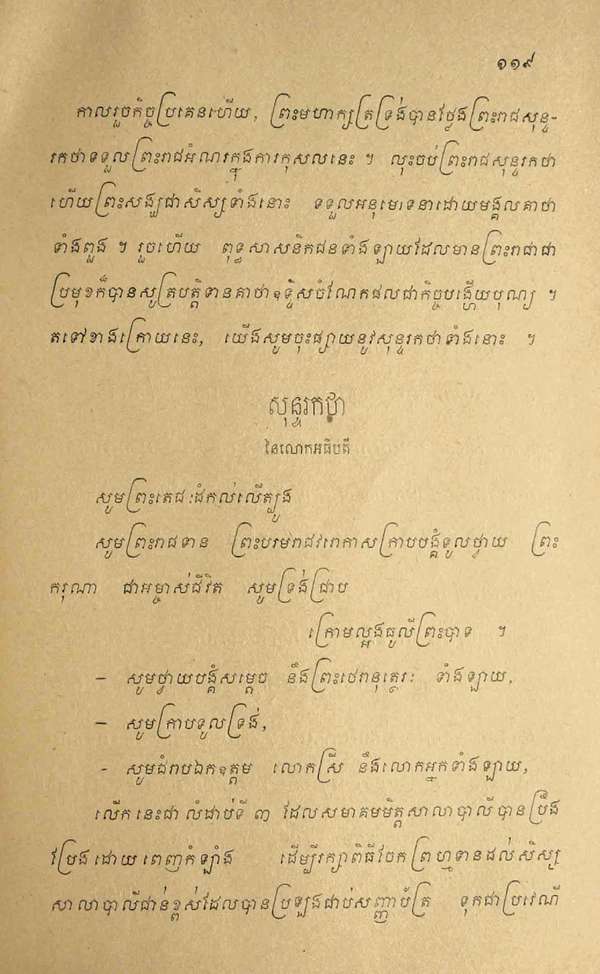 ១១៩
កាលរួចកិច្ចប្រគេនហើយ, ព្រះមហាក្សត្រទ្រង់បានថ្លែងព្រះរាជសុន្ទ-
រកថាទទួលព្រះរាជអំណរក្នុងការកុសលនេះ ។ លុះចប់ព្រះរាជសុន្ទរកថា
ហើយព្រះសង្ឃជាសិស្សទាំងនោះ ទទួលអនុមោទនាដោយមង្គលគាថា
ទាំងពួង ។ រួចហើយ ពុទ្ធសាសនិកជនទាំងឡាយដែលមានព្រះរាជាជា
ប្រមុខក៏បានសូត្របត្តិទានគាថាឧទ្ទិសចំណែកផលជាកិច្ចបង្ហើយបុណ្យ ។
តទៅខាងក្រោយនេះ, យើងសូមចុះផ្សាយនូវសុន្ទរកថាទាំងនោះ ។
សុន្ទរកថា
នៃលោកអធិបតី
សូមព្រះតេជះដំកល់លើត្បូង
សូមព្រះរាជទាន ព្រះបរមរាជវរោកាសក្រាបបង្គំទូលថ្វាយ ព្រះ
ករុណា ជាអម្ចាស់ជីវិត សូមទ្រង់ជ្រាប
ក្រោមល្អងធូលីព្រះបាទ ។
– សូមថ្វាយបង្គំសម្តេច នឹងព្រះថេរានុត្ថេរៈ ទាំងឡាយ,
– សូមក្រាបទូលទ្រង់,
- សូមជំរាបឯកឧត្តម លោកស្រី នឹងលោកអ្នកទាំងឡាយ,
លើកនេះជាលំដាប់ទី ៣ ដែលសមាគមមិត្តសាលាបាលីបានប្រឹង
ប្រែងដោយពេញកំឡាំង ដើម្បីរក្សាពិធីចែកព្រហ្មទានដល់សិស្ស
សាលាបាលីជាន់ខ្ពស់ដែលបានប្រឡងជាប់សញ្ញាប័ត្រ ទុកជាប្រវេណី